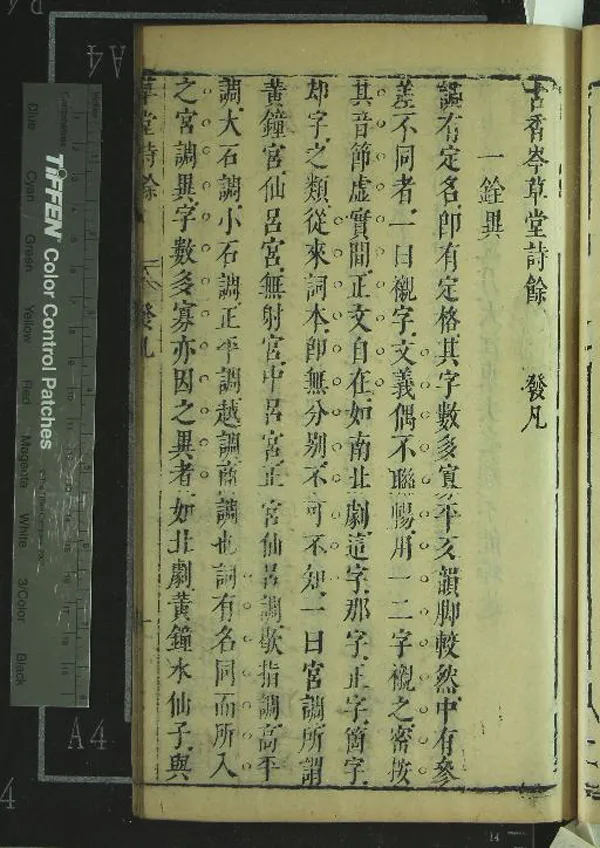 古香岑草堂詩餘 發凡
一銓異
調有定名即有定格其字數多寡平仄韻脚較然中有參
差不同者一曰襯字文義偶不聯暢用一二字襯之密按
其音節虛實間正文自在如南北劇這字那字正字箇字
却字之類從來詞本即無分别不可不知一曰宮調所謂
黃鐘宮仙呂宮無射宮中呂宮正宮仙呂調歇指調高平
調大石調小石調正平調越調商調也詞有名同而所入
之宮調異字數多寡亦因之異者如北劇黃鐘水仙子與
草堂詩餘 發凡
TIFFEN Color Control Patches
Blue Cyan Green Yellow Red Magenta White 3/Color Black
Centimetres
A4
A4
4
14